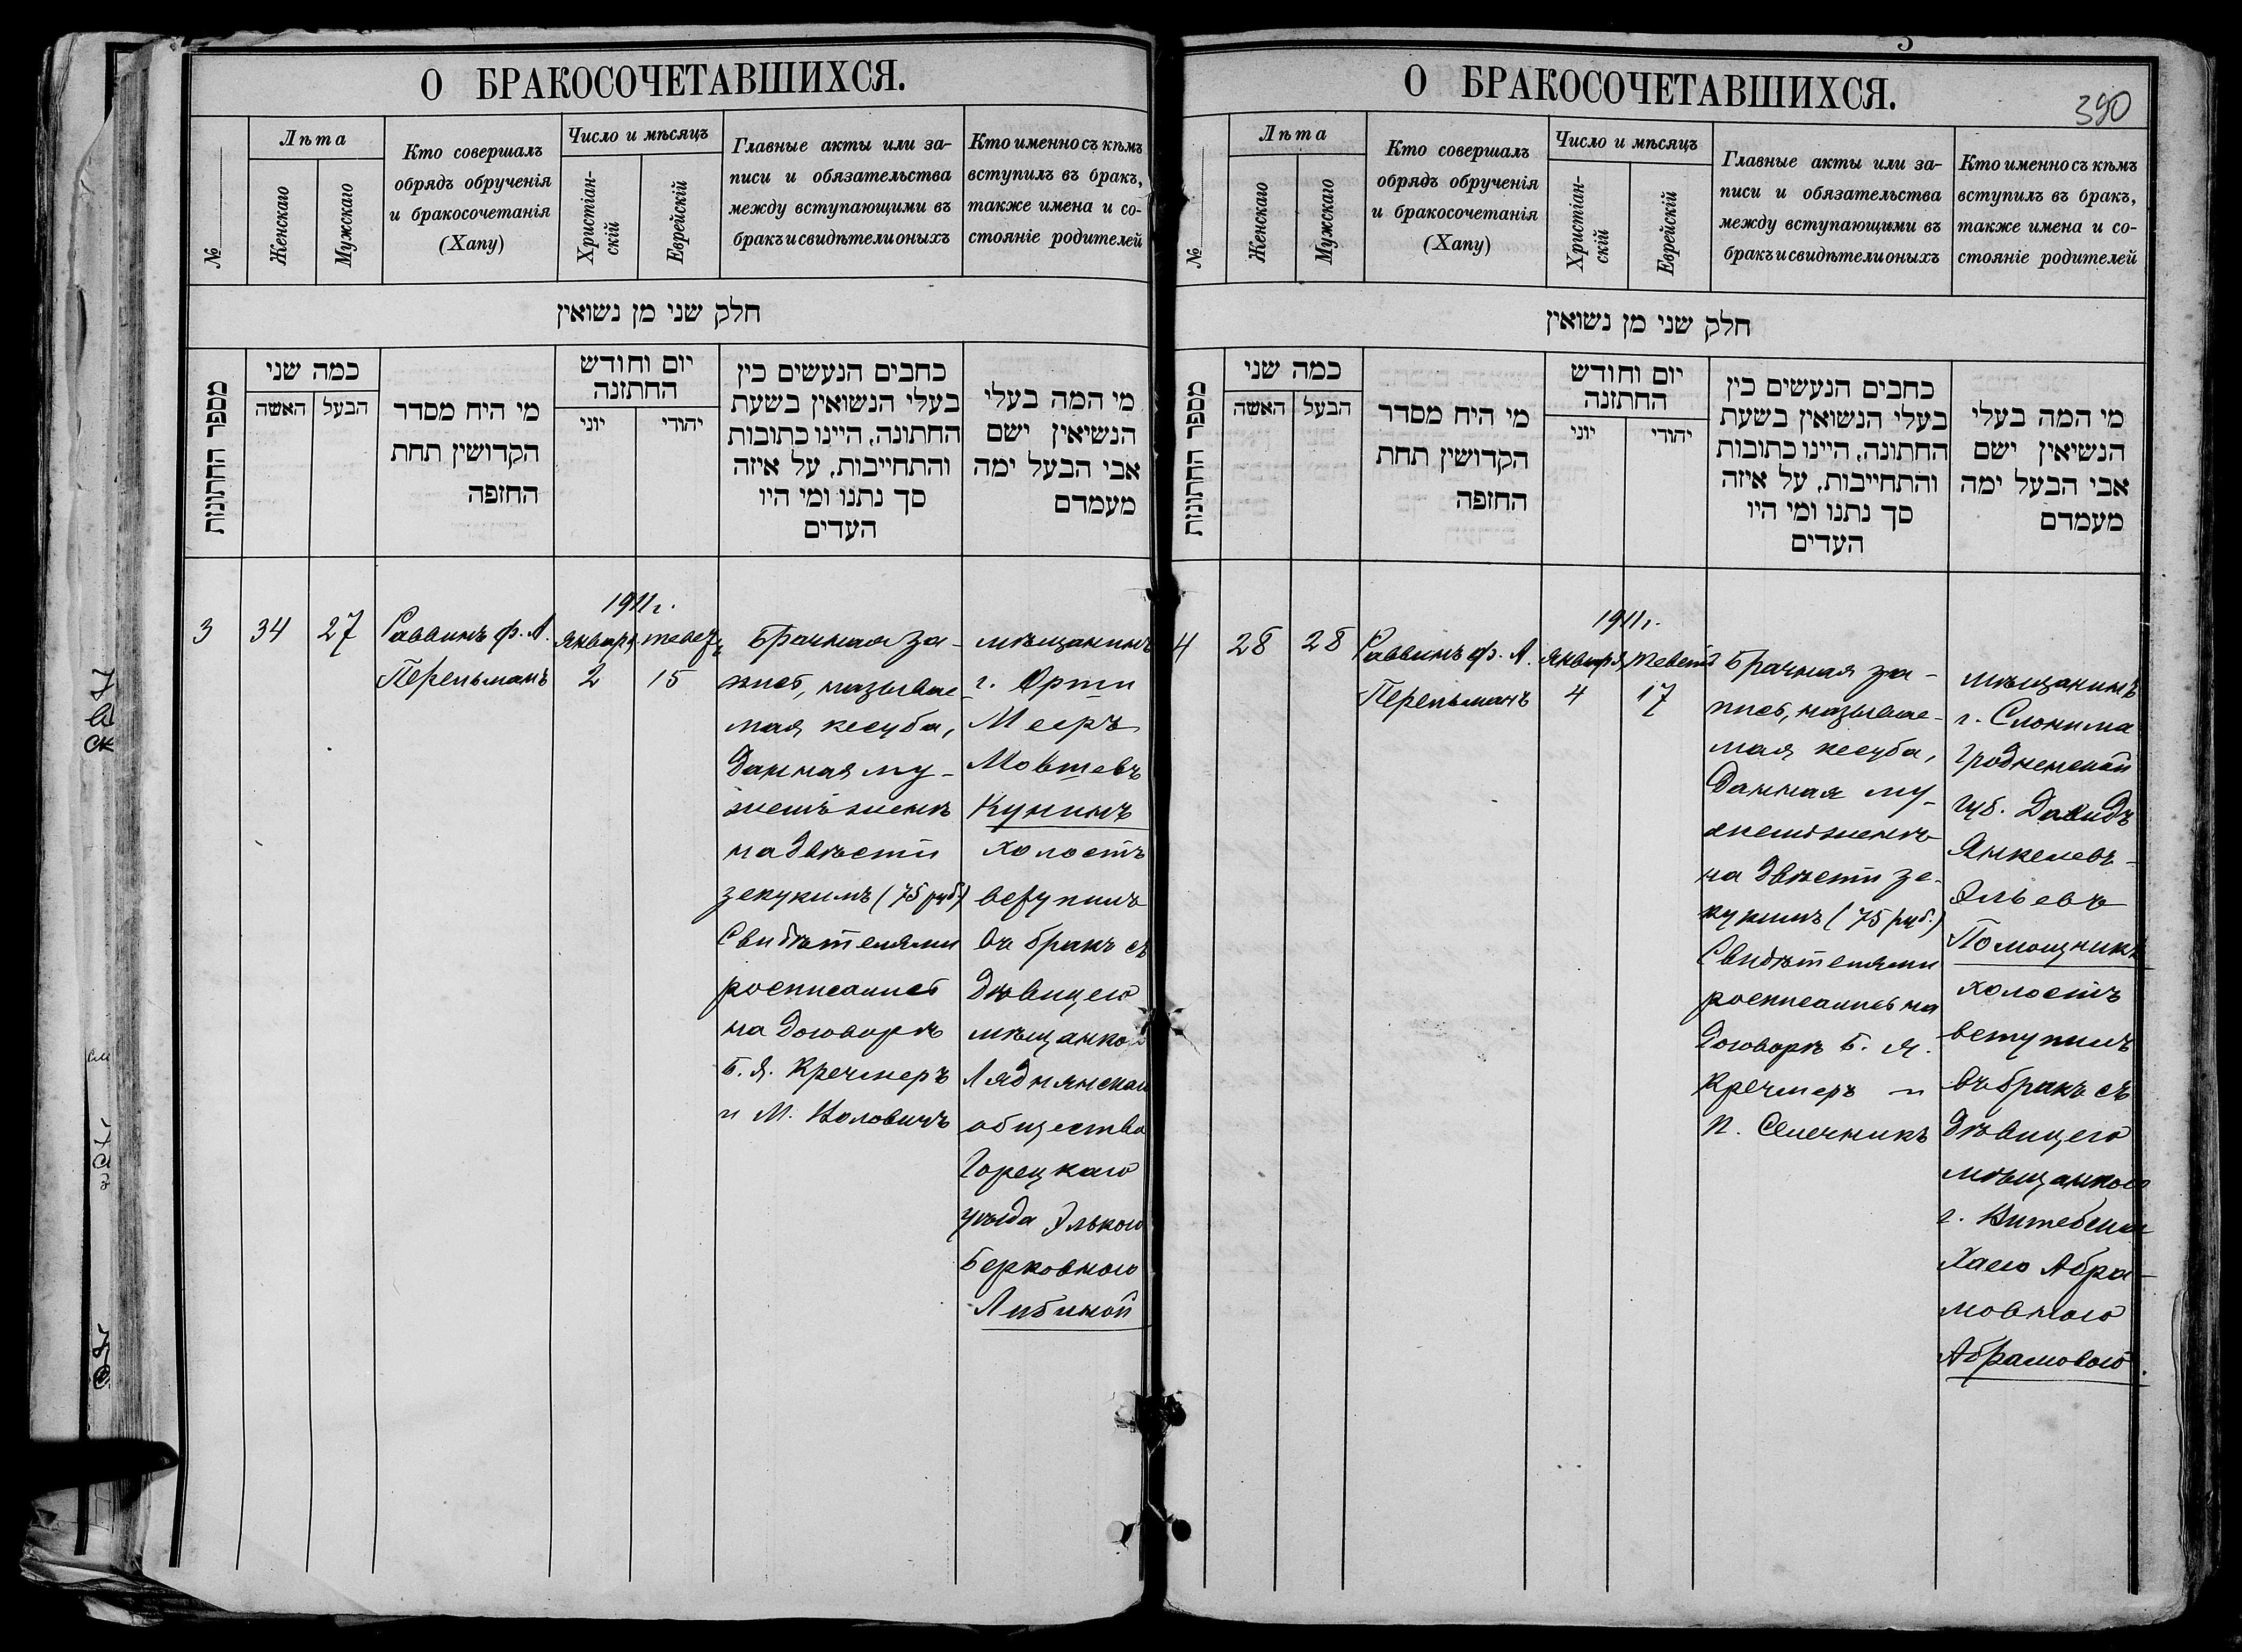 О БРАКОСОЧЕТАВШИХСЯ.
№
Лѣта
Женскаго
Мужскаго
Кто совершалъ
обрядъ обрученія
и бракосочетанія
(Хапу)
Число и мѣсяцъ
Христіан-
скій
Еврейскій
Главные акты или за-
писи и обязательства
между вступающими въ
бракъ и свидѣтели оныхъ
Кто именно съ кѣмъ
вступилъ въ бракъ,
также имена и со-
стояніе родителей
חלק שני מן נשואין
מספר החתונות
כמה שני
האשה
הבעל
מי היח מסדר
הקדושין תחת
החופה
יום וחודש
החתונה
יוני
יהודי
כחבים הנעשים כין
בעלי הנשואין בשעת
החתונה, היינו כתובות
והתחייבות, על איזה
סך נתנו ומי היו
העדים
מי המה בעלי
הנשיאין ישם
אבי הבעל ימה
מעמדם
3
34
27
Раввинъ Ф. А.
Перельманъ
1911 г.
Января
2
тевезъ
15
Брачная за-
пись, называе
мая кесуба,
данная му-
жемъ женѣ
на двѣсти
зекукимъ (75 руб.)
Свидѣтелями
росписались
на договорѣ
Б. Я. Кречмеръ
и М. Коловичъ
мѣщанинъ
г. Орши
Мееръ
Мовшевъ
Кунинъ
холостъ
вступилъ
въ бракъ съ
дѣвицею
мѣщанкою
Ляднянскаго
общества
Горецкаго
уѣзда Элькою
Берковною
Либиной
О БРАКОСОЧЕТАВШИХСЯ.
390
№
Лѣта
Женскаго
Мужскаго
Кто совершалъ
обрядъ обрученія
и бракосочетанія
(Хапу)
Число и мѣсяцъ
Христіан-
скій
Еврейскій
Главные акты или за-
писи и обязательства
между вступающими въ
бракъ и свидѣтели оныхъ
Кто именно съ кѣмъ
вступилъ въ бракъ,
также имена и со-
стояніе родителей
חלק שני מן נשואין
מספר החתונות
כמה שני
האשה
הבעל
מי היח מסדר
הקדושין תחת
החופה
יום וחודש
החתונה
יוני
יהודי
כחבים הנעשים כין
בעלי הנשואין בשעת
החתונה, היינו כתובות
והתחייבות, על איזה
סך נתנו ומי היו
העדים
מי המה בעלי
הנשיאין ישם
אבי הבעל ימה
מעמדם
4
28
28
Раввинъ Ф. А.
Перельманъ
1911 г.
Января
4
Теветь
17
Брачная за-
пись, называе-
мая кесуба,
данная му-
жемъ женѣ
на двѣсти зе-
кукимъ (75 руб.)
Свидѣтелями
росписались на
договорѣ Б. Я.
Кречмеръ и
П. Селечникъ
мѣщанинъ
г. Слонима
Гродненской
губ. Давидъ
Янкелевъ-
Эльевъ
Помощникъ
холостъ
вступилъ
въ бракъ съ
дѣвицею
мѣщанкою
г. Витебска
Хаею Абра-
мовною
Абрамовою.